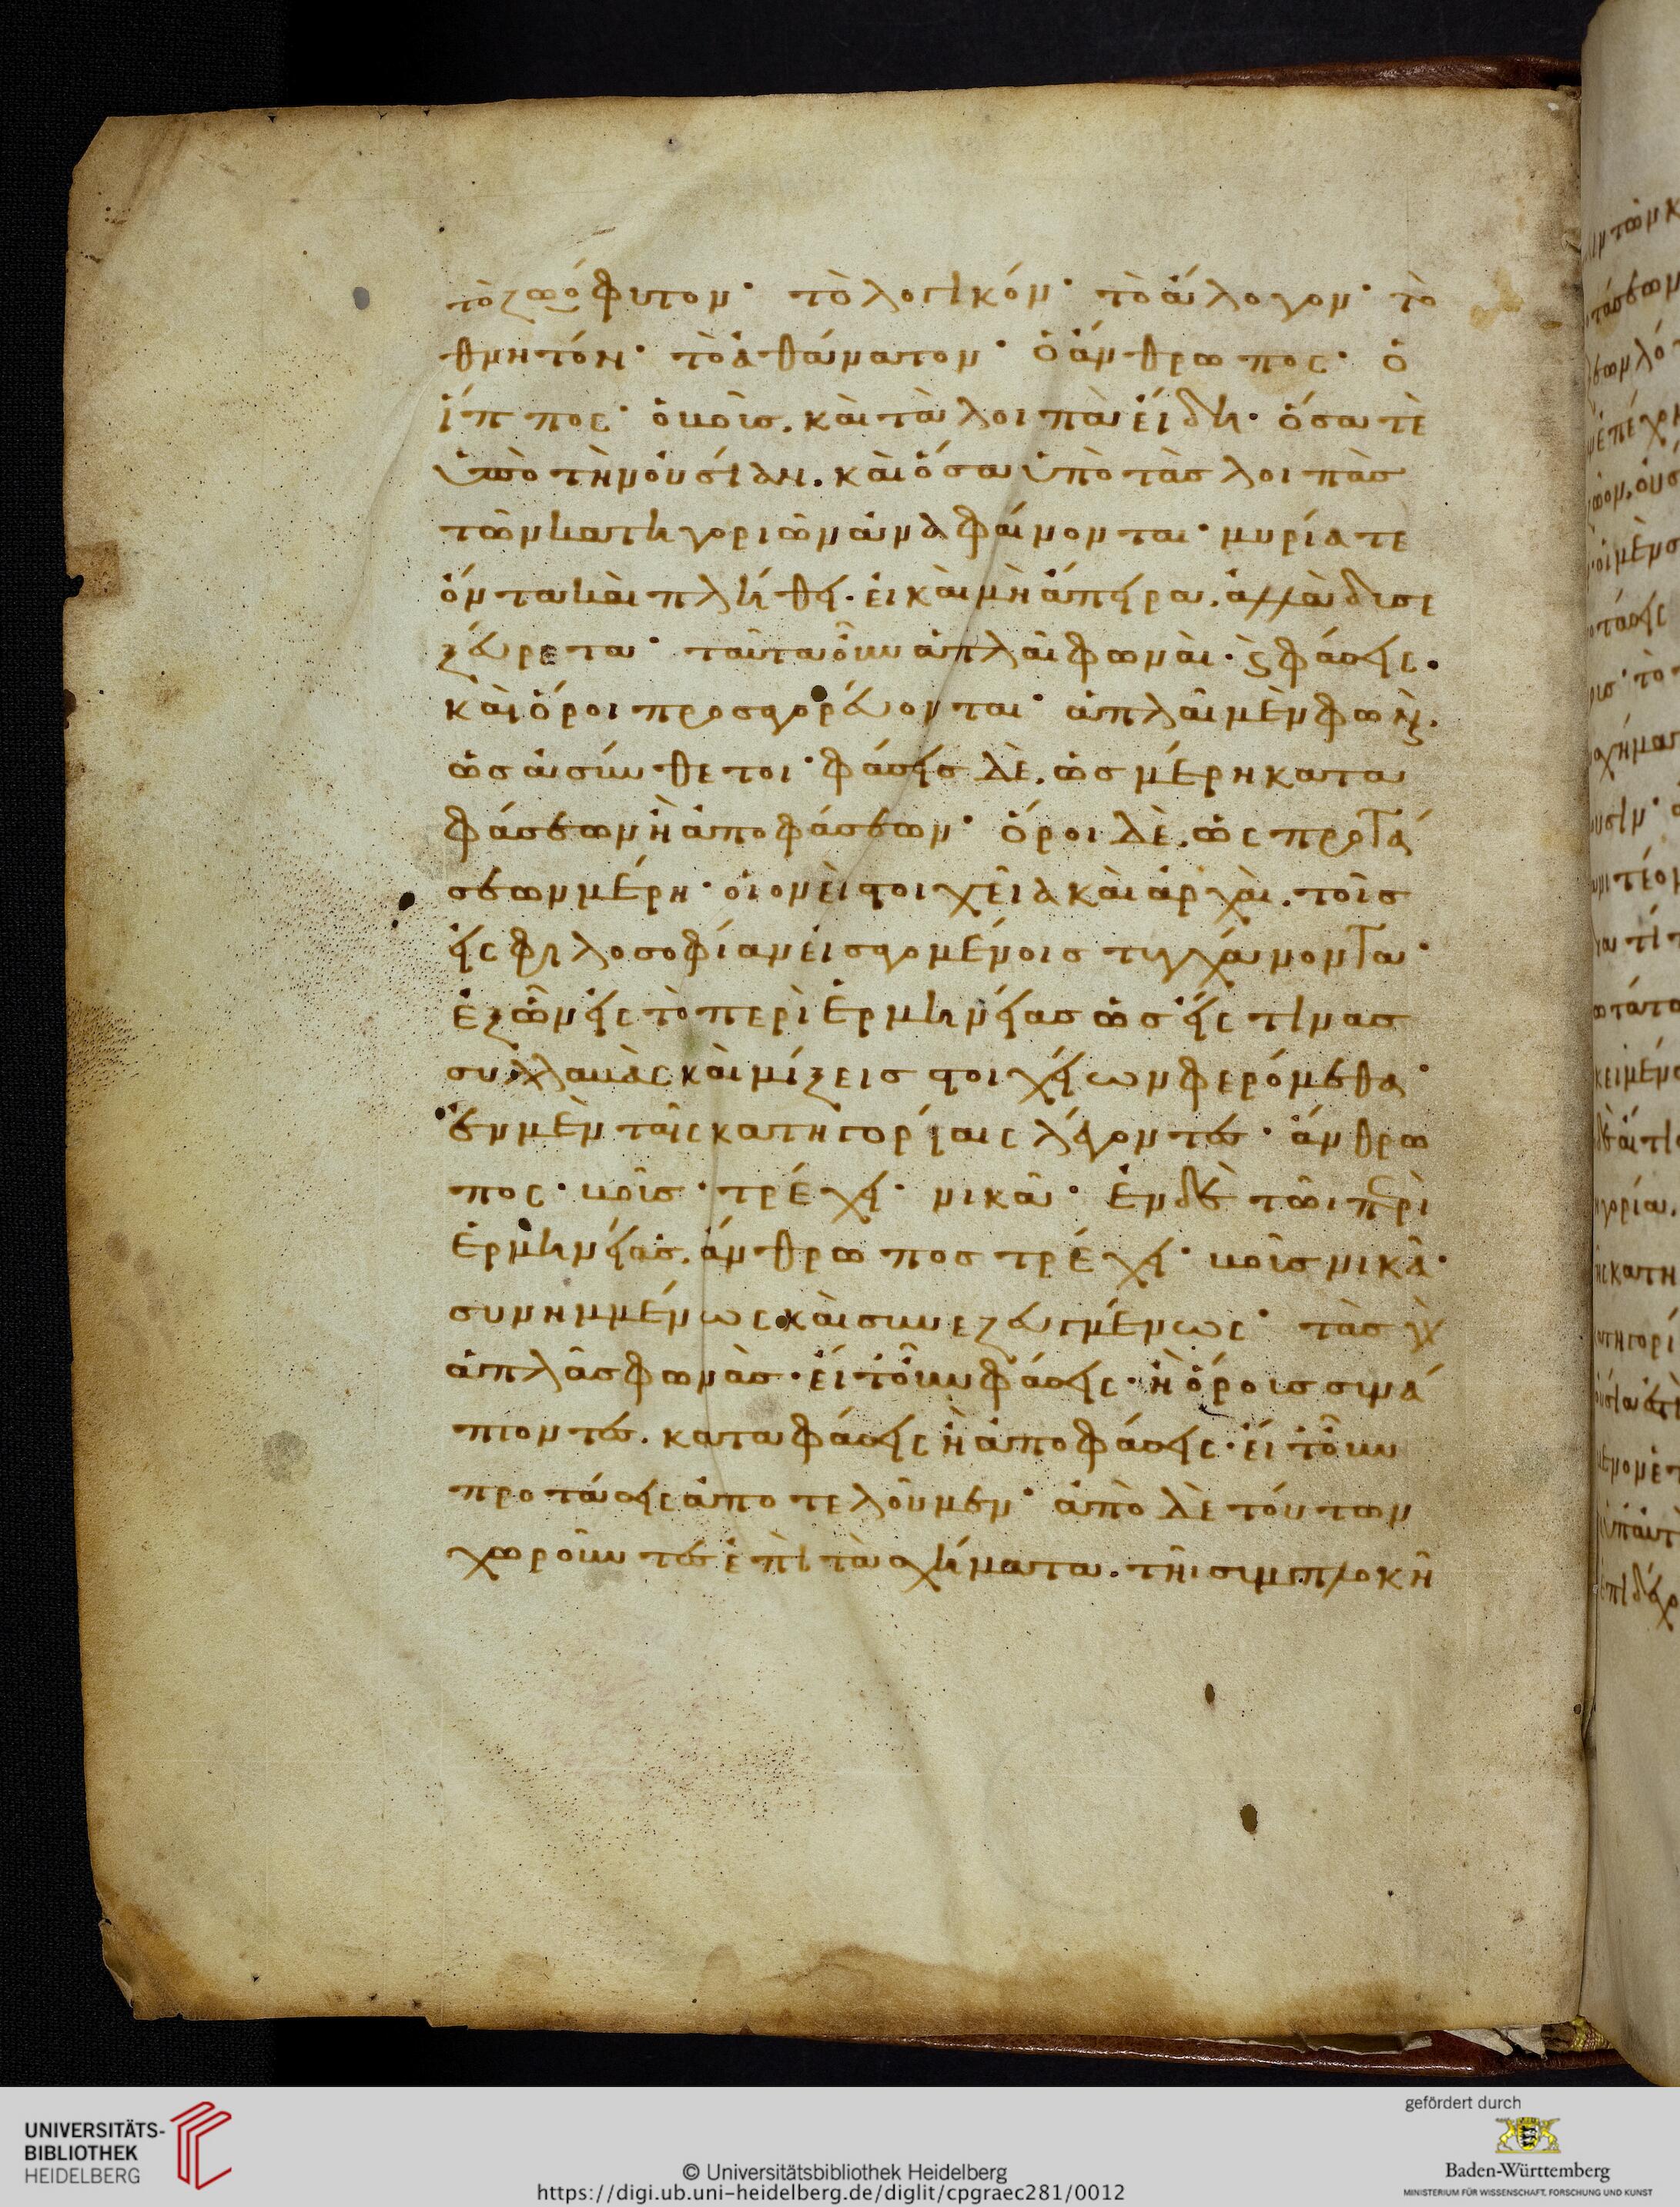 τὸ ζωόφυτον· τὸ λογικόν· τὸ ἄλογον· τὸ
θνητόν· τὸ ἀθάνατον· ὁ ἄνθρωπος· ὁ
ἵππος· ὁ βοῦς. καὶ τὰ λοιπὰ εἴδη· ὅσα τὲ
ὑπὸ τὴν οὐσίαν. καὶ ὅσα ὑπὸ τὰς λοιπὰς
τῶν κατηγοριῶν ἀναφαίνονται· μυρία τε
ὄντα καὶ πλήθει. εἰ καὶ μὴ ἄπειρα. ἀλλὰ δυσε
ξεύρετα· ταῦτα οὖν ἁπλαῖ φωναὶ· καὶ φάσεις.
καὶ ὅροι προσαγορεύονται· ἁπλαῖ μὲν φωναὶ.
ὡς ἀσύνθετοι· φάσεις δὲ. ὡς μέρη κατα
φάσεων ἢ ἀποφάσεων· ὅροι δὲ. ὡς προτά
σεων μέρη· οἱονεὶ στοιχεῖα καὶ ἀρχαὶ. τοῖς
εἰς φιλοσοφίαν εἰσαγομένοις τυγχάνοντα·
ἐξ ὧν εἰς τὸ περὶ ἑρμηνείας ὡς εἴς τινας
συλλαβὰς καὶ μίξεις στοιχείων φερόμεθα·
ἐν μὲν ταῖς κατηγορίαις λέγοντες· ἄνθρω
πος· βοῦς· τρέχει· νικᾶ· ἐν δὲ τῶι περὶ
ἑρμηνείας. ἄνθρωπος τρέχει· βοῦς νικᾶ·
συνημμένως καὶ συνεζευγμένως· τὰς γὰρ
ἁπλᾶς φωνὰς. εἴτ' οὖν φάσεις. ἢ ὅροις συνά
πτοντες. καταφάσεις ἢ ἀποφάσεις. εἴτ' οὖν
προτάσεις ἀποτελοῦμεν· ἀπὸ δὲ τούτων
χωροῦντες ἐπὶ τὰ σχήματα. τῆι συμπλοκῆ
UNIVERSITÄTS-
BIBLIOTHEK
HEIDELBERG
© Universitätsbibliothek Heidelberg
https://digi.ub.uni-heidelberg.de/diglit/cpgraec281/0012
gefördert durch
Baden-Württemberg
MINISTERIUM FÜR WISSENSCHAFT, FORSCHUNG UND KUNST